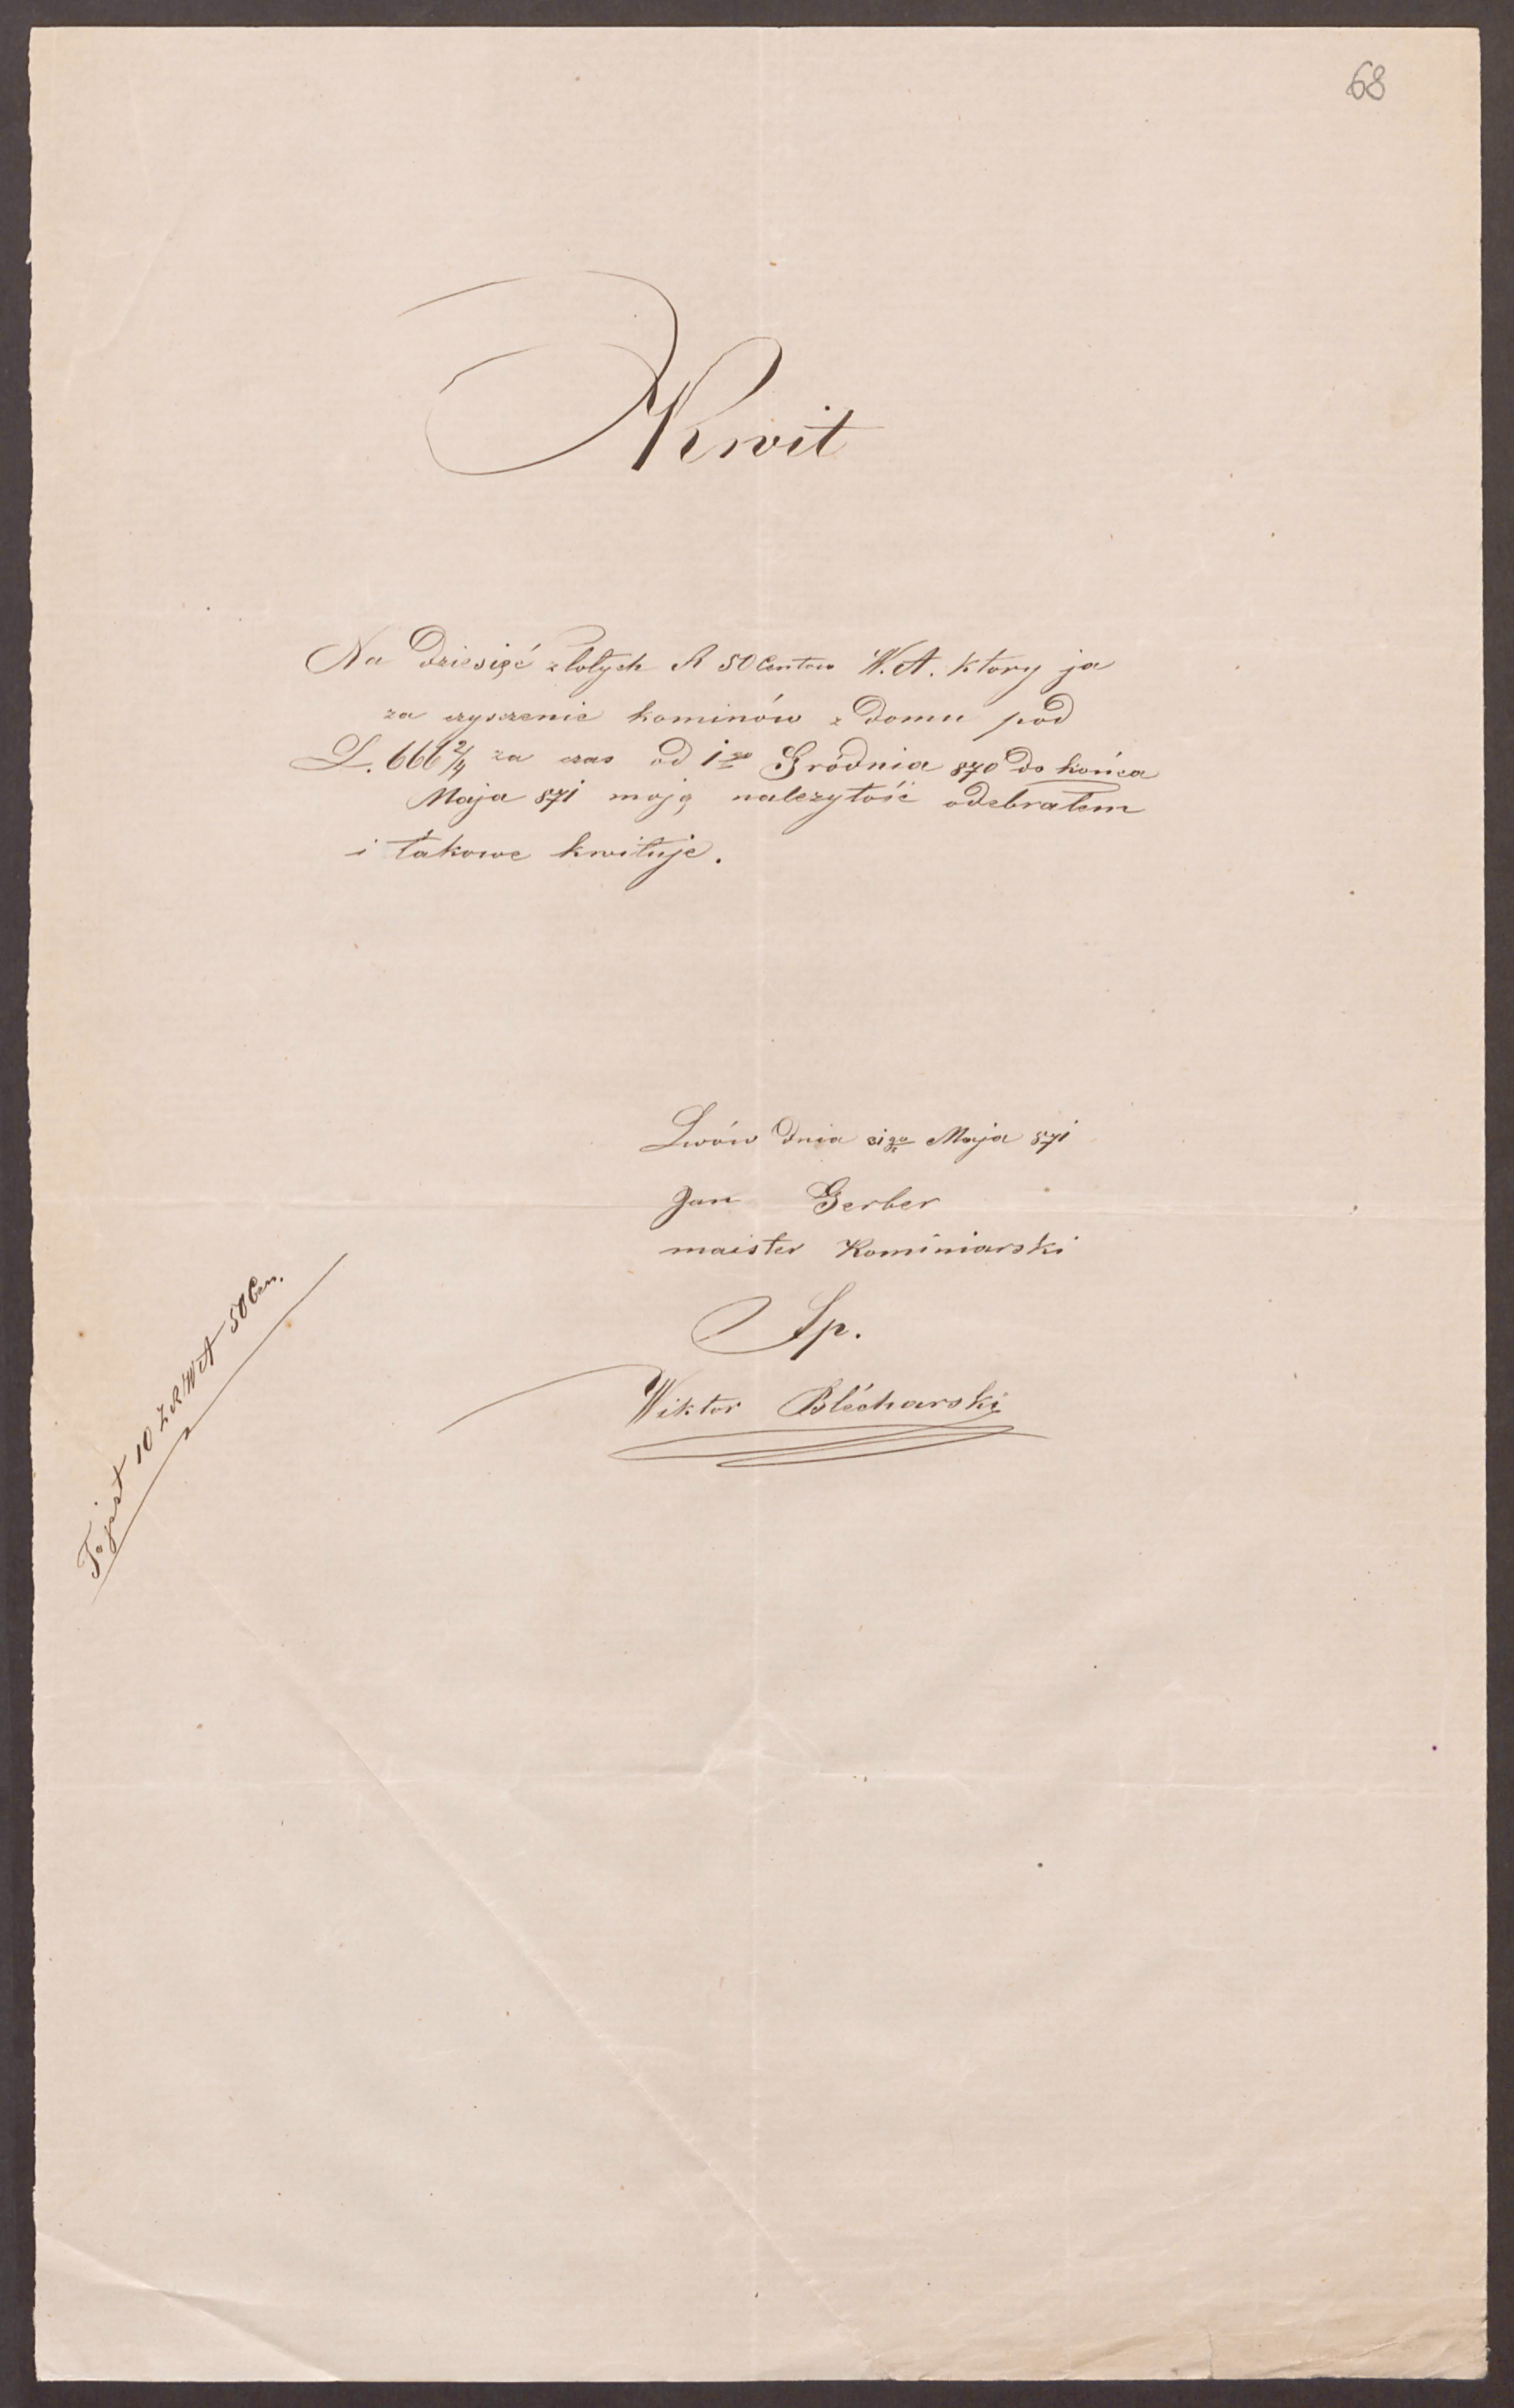 68
Kwit
Na dziesięć złotych R 50 Centów W.A. ktory ja
za czyszczenie kominów z domu pod
L. 666 2/4 za czas od 1go Gródnia 870 do końca
Maja 871 moją należytość odebrałem
i takowe kwituje.
Lwów dnia 31go Maja 871
Jan Gerber
maister Kominiarski
Sp.
Wiktor Blécharski
To jest 10 Z R W A 50 Cen.